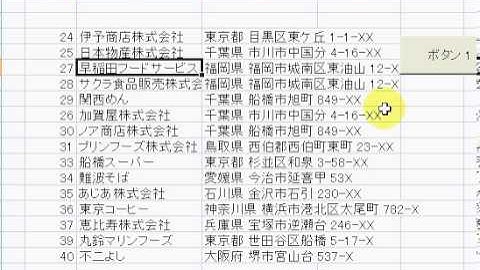 24 伊予商店株式会社 東京都 目黒区東ケ丘 1-1-XX
25 日本物産株式会社 千葉県 市川市中国分 4-16-XX
27 早稲田フードサービス 福岡県 福岡市城南区東油山 12-X
28 サクラ食品販売株式会 福岡県 福岡市城南区東油山 12-X
29 関西めん 千葉県 船橋市旭町 849-XX
26 加賀屋株式会社 千葉県 市川市中国分 4-16-XX
30 ノア商店株式会社 千葉県 船橋市旭町 849-XX
31 プリンフーズ株式会社 鳥取県 西伯郡西伯町東町 23-XX
33 船橋スーパー 東京都 杉並区和泉 3-58-XX
34 難波そば 愛媛県 今治市延喜甲 53X
35 あじあ株式会社 石川県 金沢市石引 230-XX
36 東京コーヒー 神奈川県 横浜市港北区太尾町 782-X
37 恵比寿株式会社 兵庫県 宝塚市逆瀬台 246-XX
39 丸鈴マリンフーズ 東京都 世田谷区船橋 5-17-X
40 不二よし 大阪府 堺市宮山台 537-X
ボタン 1